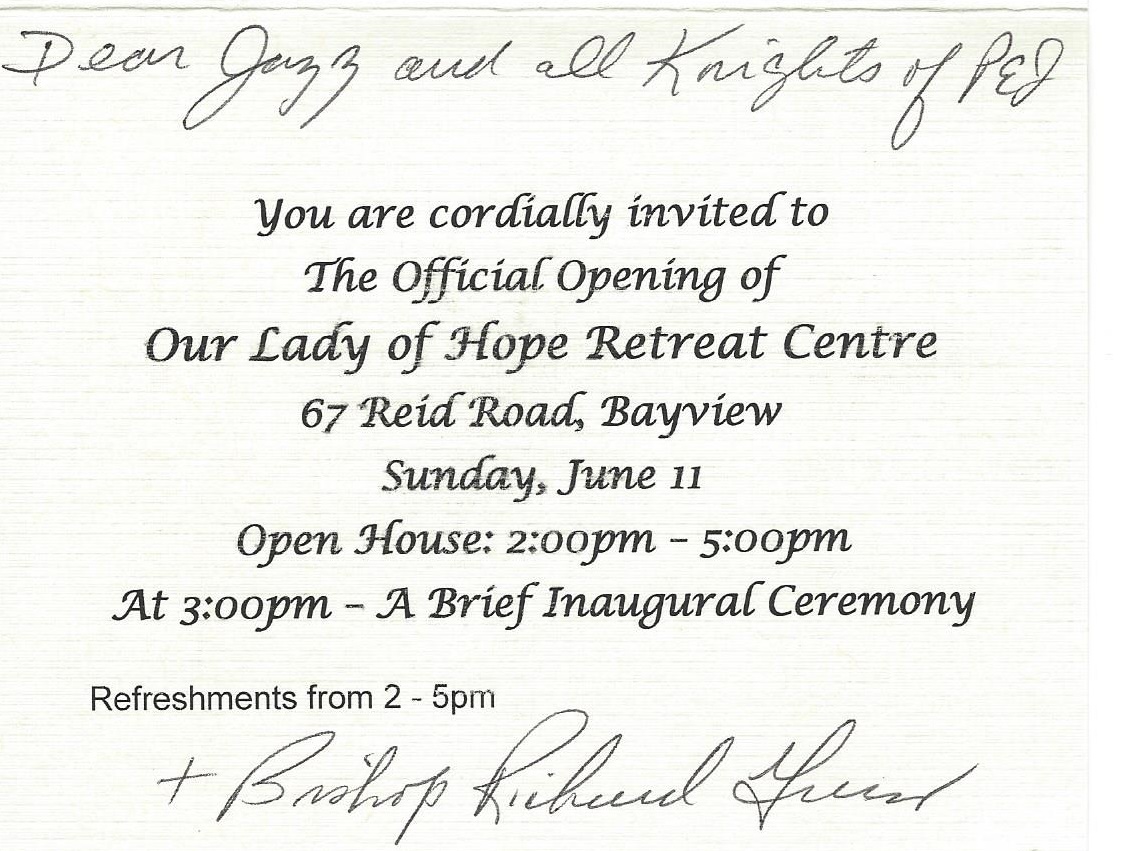 Dear Jazz and all Knights of PEI
You are cordially invited to
The Official Opening of
Our Lady of Hope Retreat Centre
67 Reid Road, Bayview
Sunday, June 11
Open House: 2:00pm – 5:00pm
At 3:00pm – A Brief Inaugural Ceremony
Refreshments from 2 - 5pm
+ Bishop Richard